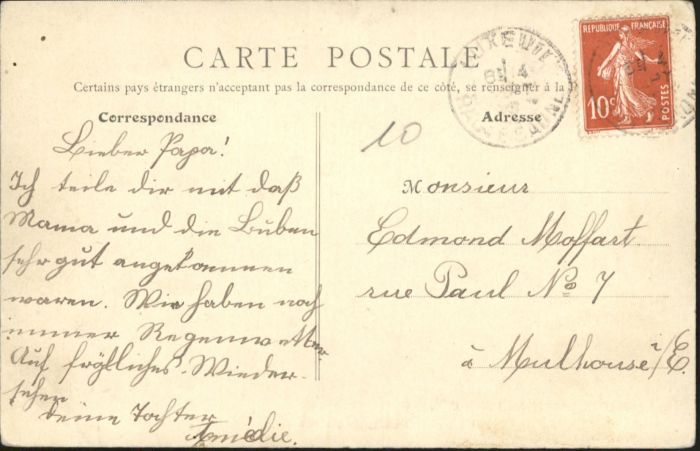 CARTE POSTALE
Certains pays étrangers n'acceptant pas la correspondance de ce côté, se renseigner à la
Correspondance
Adresse
RÉPUBLIQUE FRANÇAISE
10c
POSTES
10
Lieber Papa!
Ich teile dir mit daß
Mama und die Buben
sehr gut angekommen
waren. Wir haben noch
immer Regenwetter
Auf fröhliches Wieder-
sehen
deine Tochter
Amédie.
Monsieur
Edmond Moffart
rue Paul No 7
à Mulhouse /E.